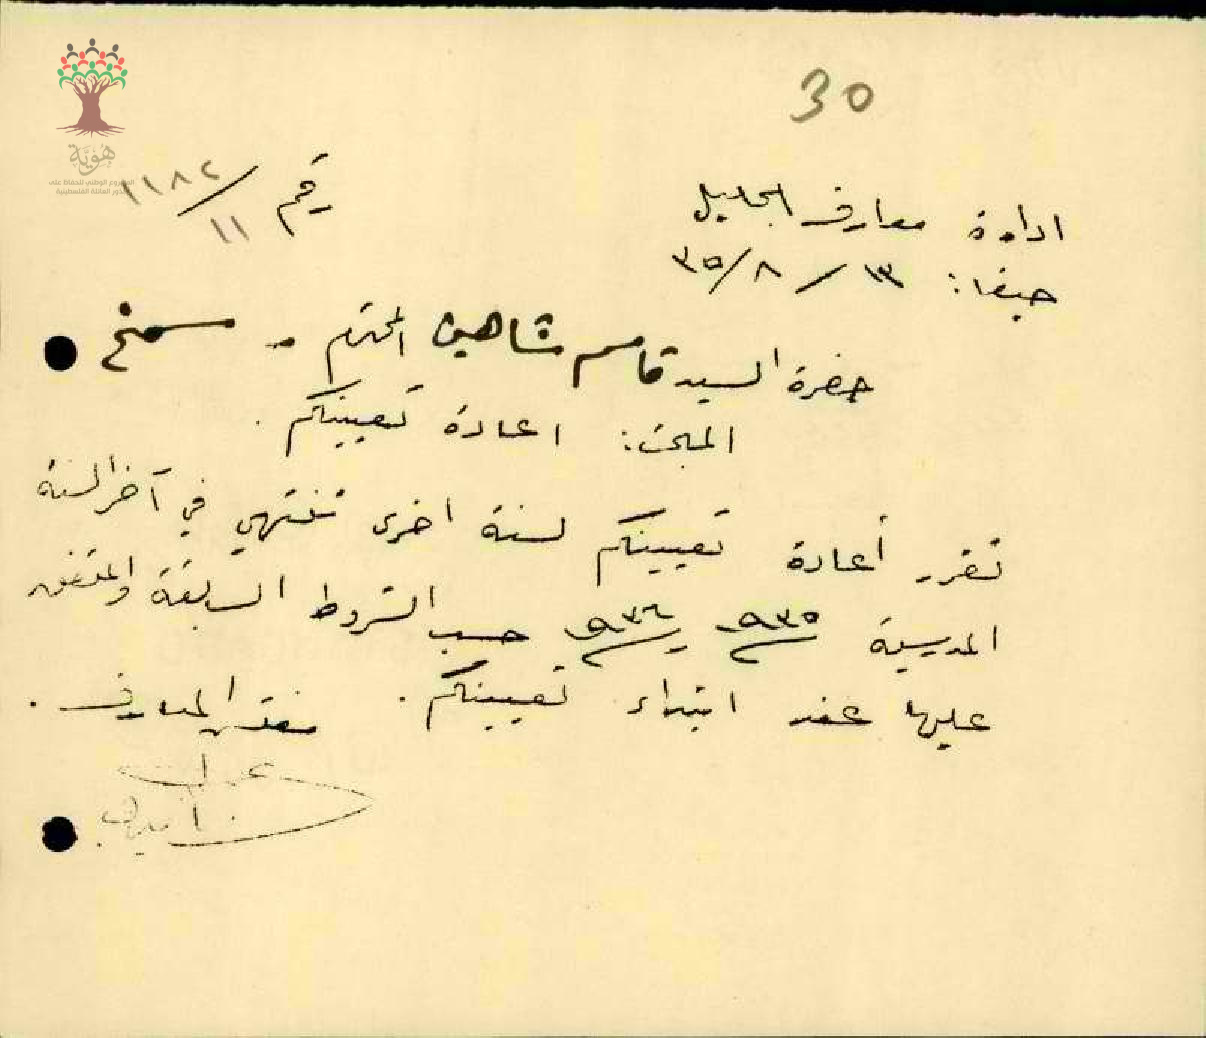 30
ادارة معارف الجليل
رقم ١١٨٢/١١
حيفا: ١٣/٨/٣٥
حضرة السيد قاسم شاهين المحترم - سمخ
المبحث: اعادة تعيينكم.
تقرر أعادة تعيينكم لسنة اخرى تنتهي في آخر السنة
المدرسية ٩٣٥ - ٩٣٦ حسب الشروط السابقة والمتفق
عليها عند ابتداء تعيينكم. مفتش المعارف.
هُوِيَّة
المشروع الوطني للحفاظ على
جذور العائلة الفلسطينية